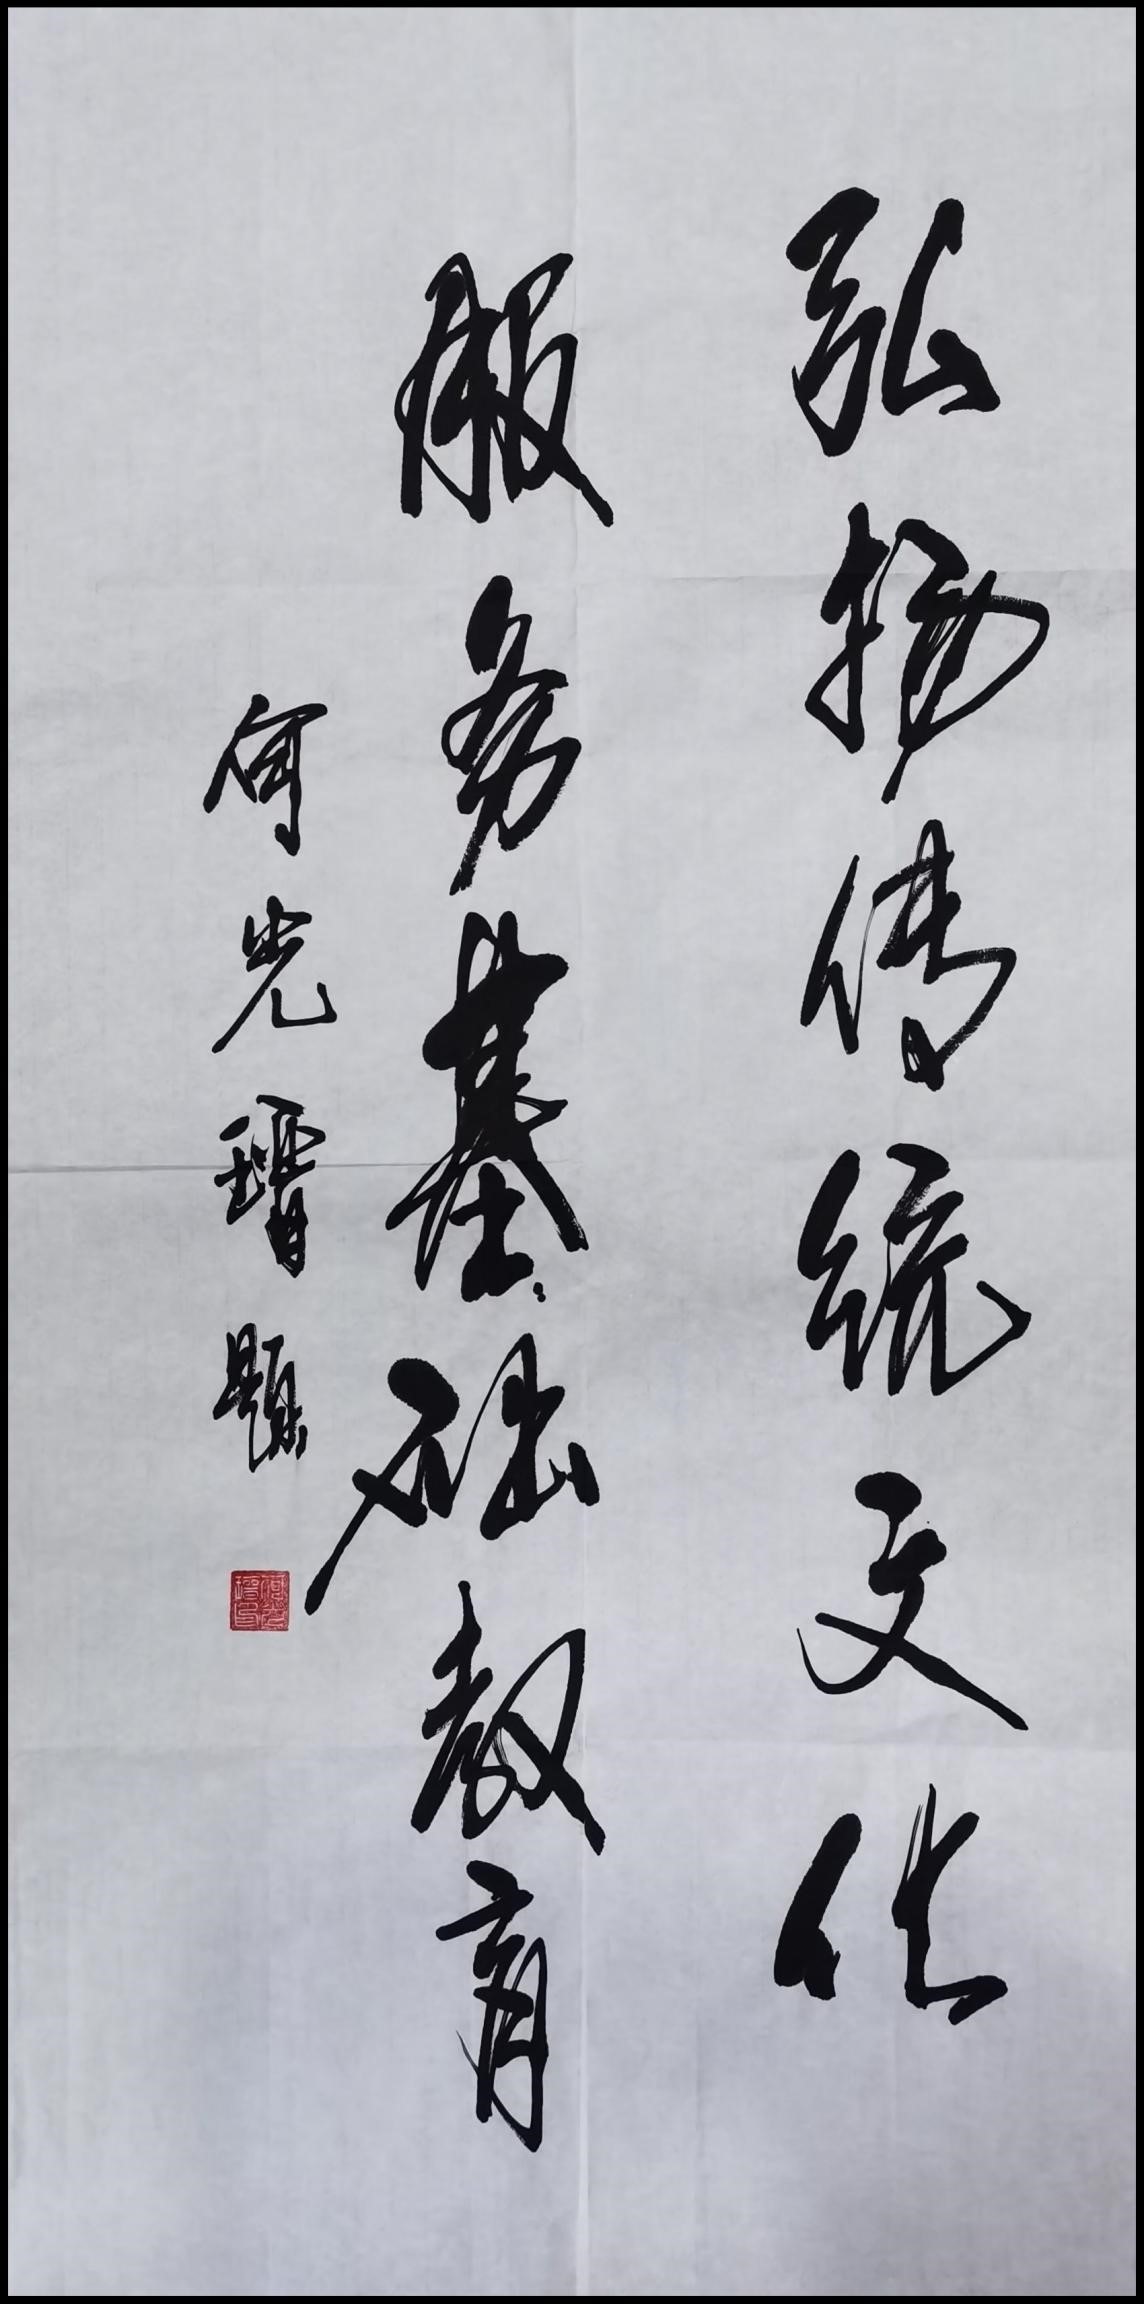 弘扬传统文化
服务基础教育
何光瑨题